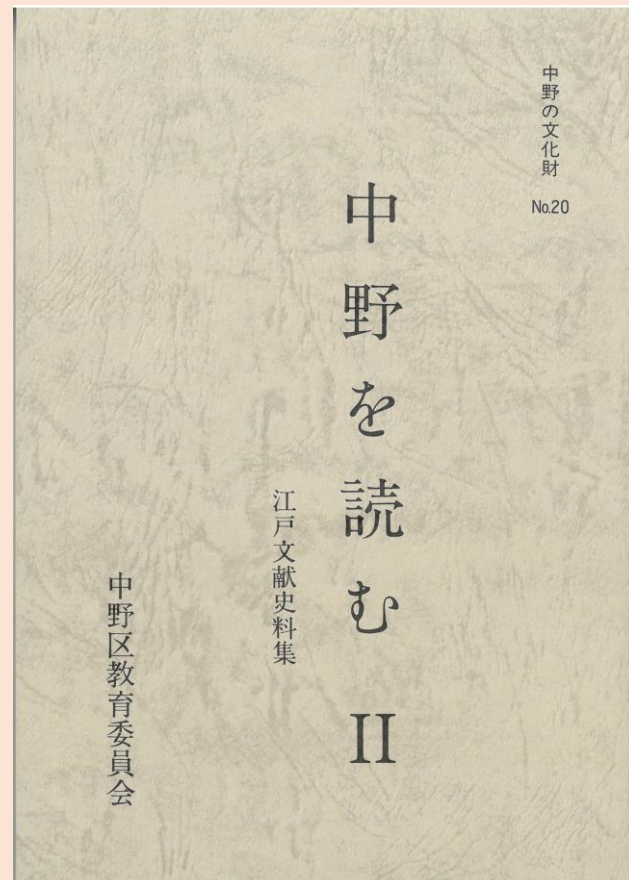 中野の文化財
No.20
中野を読む II
江戸文献史料集
中野区教育委員会